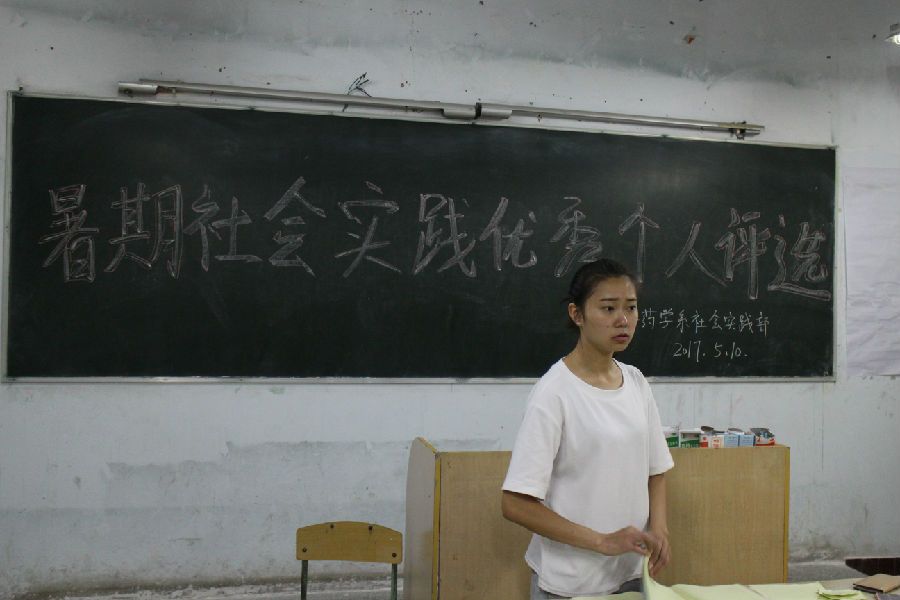 暑期社会实践优秀个人评选
药学系社会实践部
2017.5.10.